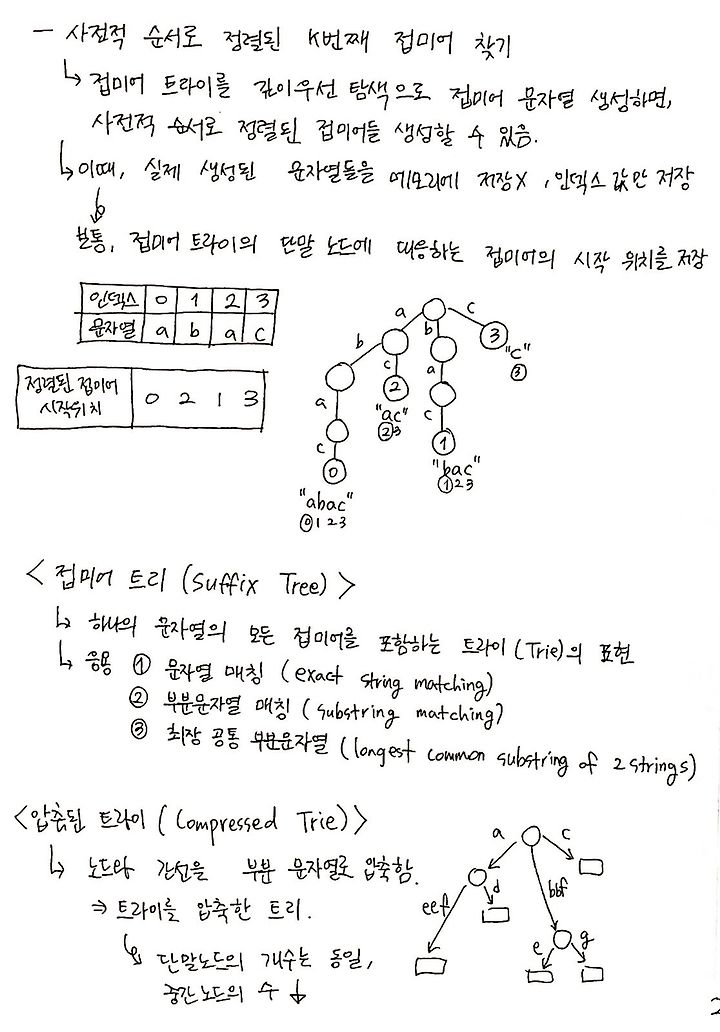 - 사전적 순서로 정렬된 K번째 접미어 찾기
↳ 접미어 트라이를 깊이우선 탐색으로 접미어 문자열 생성하면,
사전적 순서로 정렬된 접미어들 생성할 수 있음.
↳ 이때, 실제 생성된 문자열들을 메모리에 저장X, 인덱스 값만 저장
보통, 접미어 트라이의 단말 노드에 대응하는 접미어의 시작 위치를 저장
인덱스 0 1 2 3
문자열 a b a c
정렬된 접미어
시작위치 0 2 1 3
a b c
b c a 3
"c"
③
a 2 c
"ac"
②3
c 1
"bac"
①23
0
"abac"
⓪123
<접미어 트리 (Suffix Tree)>
↳ 하나의 문자열의 모든 접미어를 포함하는 트라이(Trie)의 표현
↳ 응용 ① 문자열 매칭 (exact string matching)
② 부분문자열 매칭 (substring matching)
③ 최장 공통 부분문자열 (longest common substring of 2 strings)
<압축된 트라이 (Compressed Trie)>
↳ 노드와 간선을 부분 문자열로 압축함.
⇒ 트라이를 압축한 트리.
↳ 단말노드의 개수는 동일,
중간노드의 수 ↓
a c
eef d bbf
e g
2